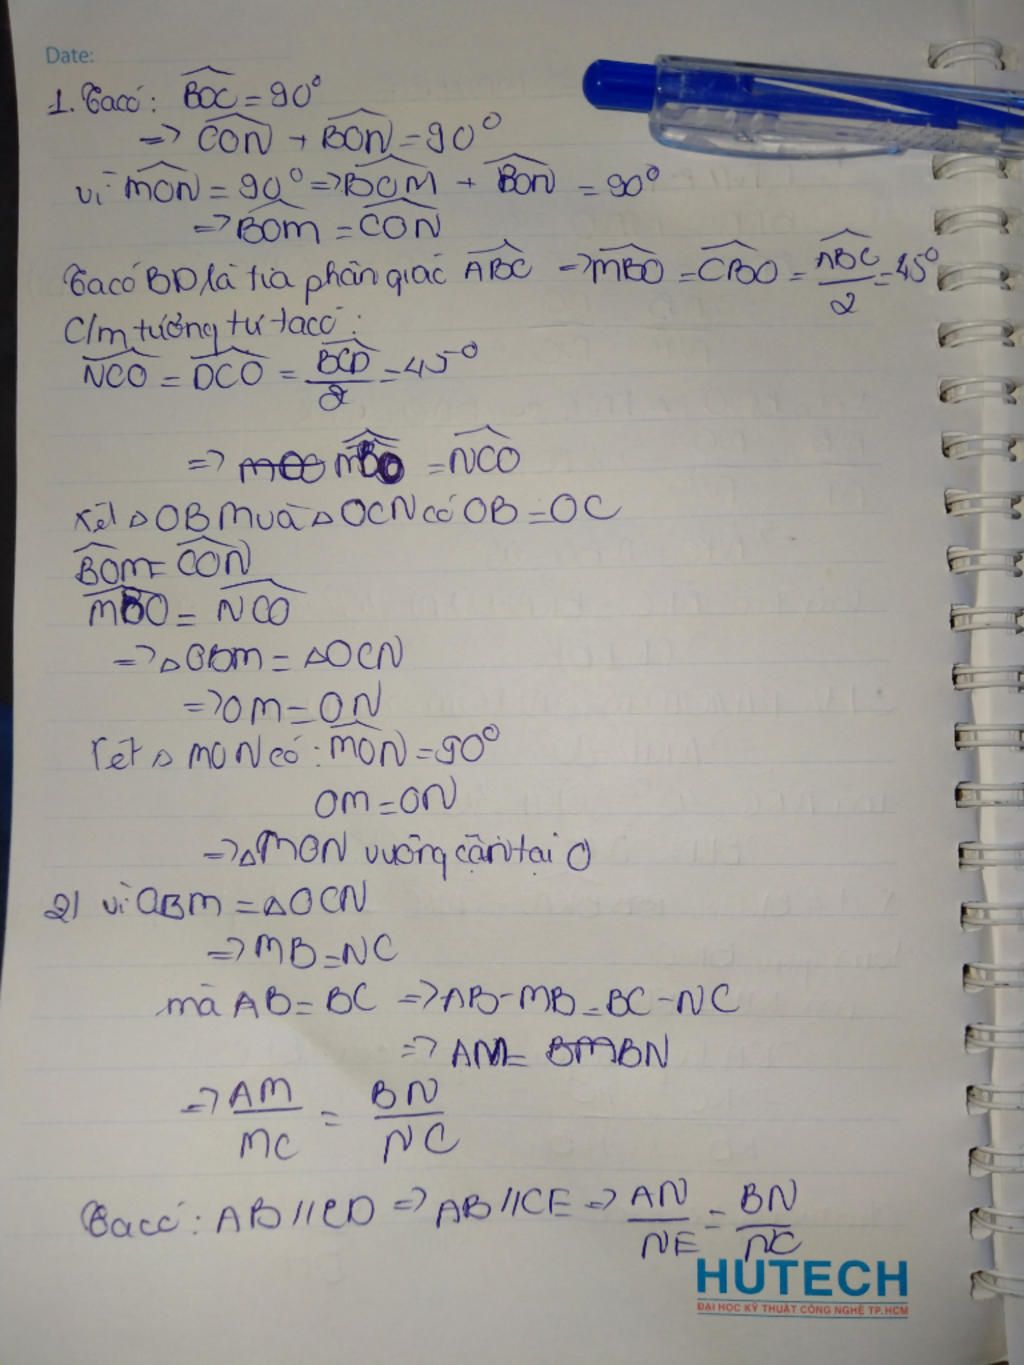 Date:
1. Ta có: BOC = 90°
=> CON + BON = 90°
vì MON = 90° => BOM + BON = 90°
=> BOM = CON
Ta có BD là tia phân giác ABC => MBO = CBO = ABC/2 = 45°
C/m tương tự ta có:
NCO = DCO = BCD/2 = 45°
=> MBO = NCO
Xét △ OBM và △ OCN có OB = OC
BOM = CON
MBO = NCO
=> △OBM = △OCN
=> OM = ON
Xét △ MON có: MON = 90°
OM = ON
=> △MON vuông cân tại O
2) vì OBM = △OCN
=> MB = NC
mà AB = BC => AB - MB = BC - NC
=> AM = BN
=> AM/MC = BN/NC
Ta có: AB // CD => AB // CE => AN/NE = BN/NC
HUTECH
ĐẠI HỌC KỸ THUẬT CÔNG NGHỆ TP.HCM